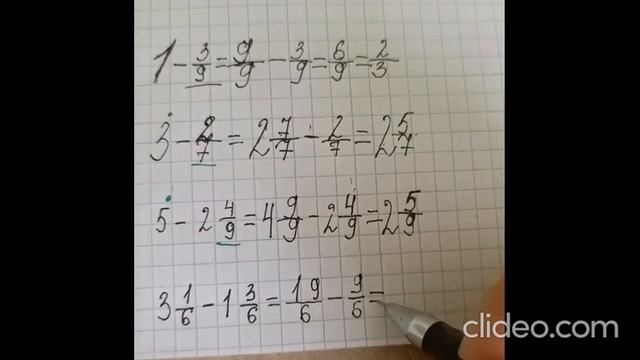 1 - 3/9 = 9/9 - 3/9 = 6/9 = 2/3
3 - 2/7 = 2 7/7 - 2/7 = 2 5/7
5 - 2 4/9 = 4 9/9 - 2 4/9 = 2 5/9
3 1/6 - 1 3/6 = 19/6 - 9/6 =
clideo.com